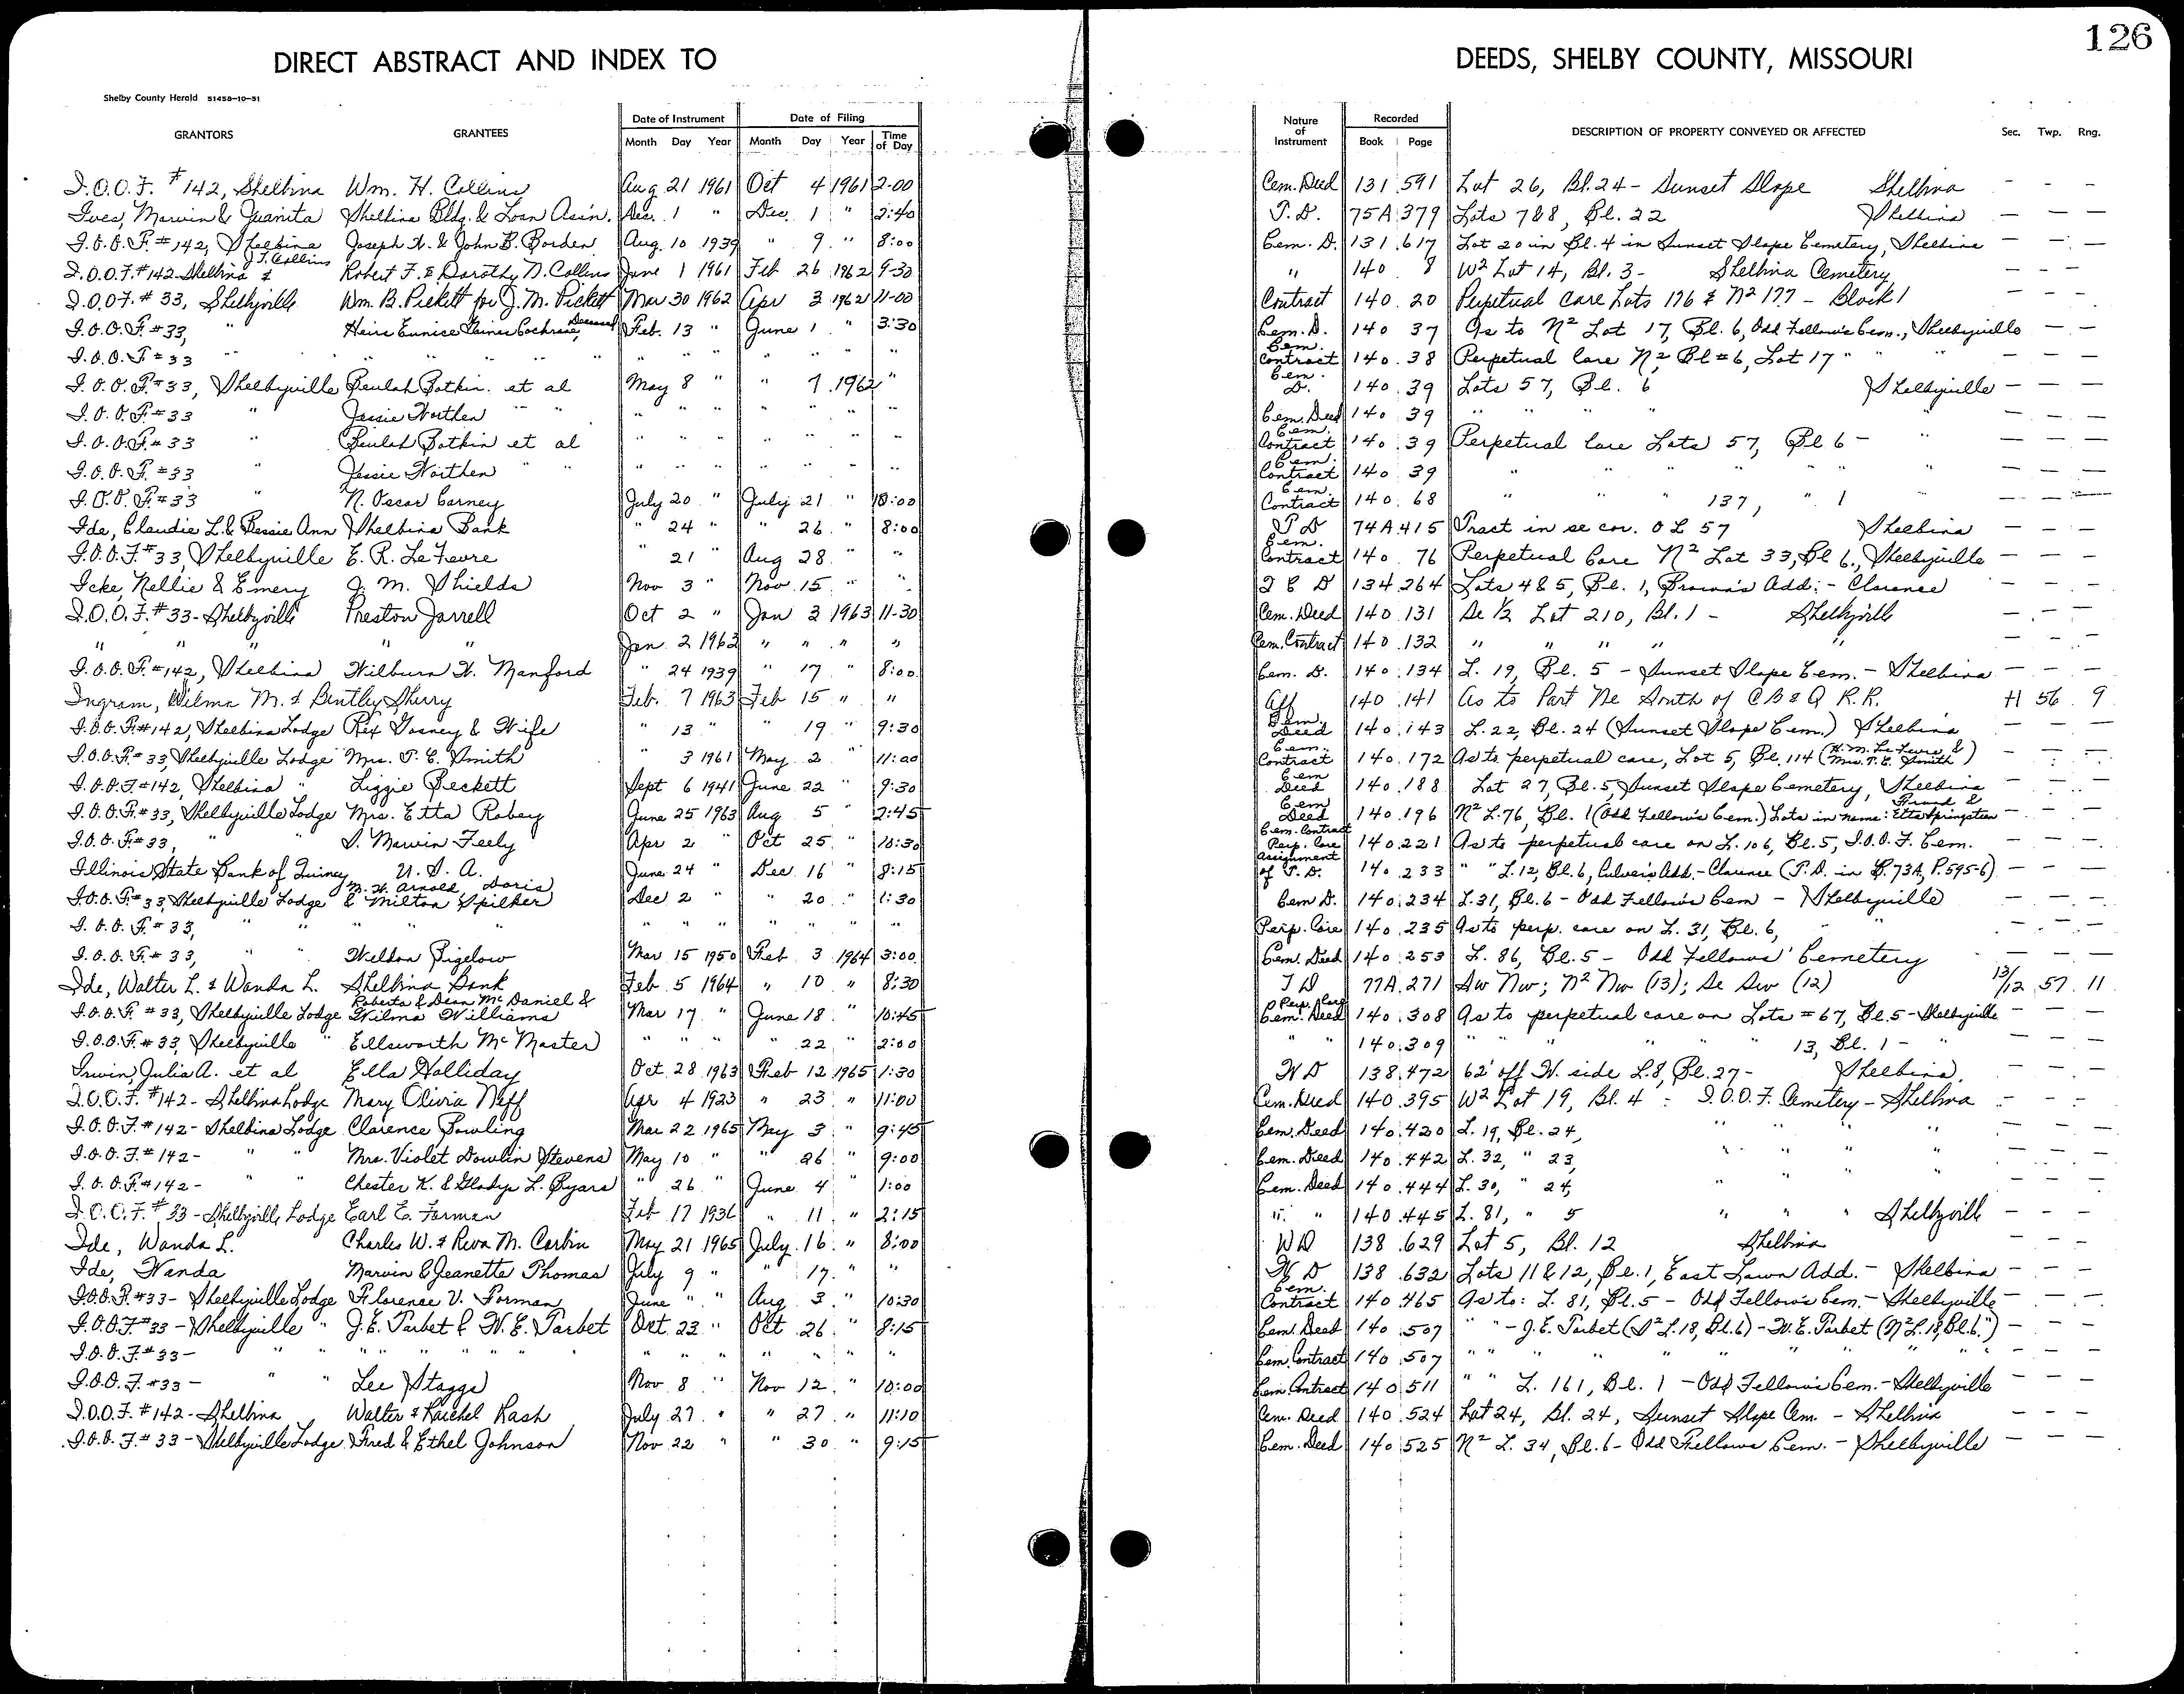 126
DIRECT ABSTRACT AND INDEX TO DEEDS, SHELBY COUNTY, MISSOURI
Shelby County Herald 51458-10-51
GRANTORS GRANTEES Date of Instrument Date of Filing Nature of Instrument Recorded DESCRIPTION OF PROPERTY CONVEYED OR AFFECTED Sec. Twp. Rng.
Month Day Year Month Day Year Time of Day Book Page
I.O.O.F. #142, Shelbina Wm. H. Collins Aug 21 1961 Oct 4 1961 2-00 Cem. Deed 131 591 Lot 26, Bl. 24 - Sunset Slope Shelbina - - -
Ives, Marvin & Juanita Shelbina Bldg. & Loan Ass'n. Dec. 1 " Dec. 1 " 2:40 T. D. 75A 379 Lots 7&8, Bl. 22 Shelbina - - -
I.O.O.F. #142, Shelbina Joseph A. & John B. Borden Aug. 10 1939 " 9 " 8:00 Cem. D. 131 617 Lot 20 in Bl. 4 in Sunset Slope Cemetery, Shelbina - - -
I.O.O.F. #142 Shelbina & J.T. Collins Robert F. & Dorothy D. Collins June 1 1961 Feb 26 1962 9-30 " 140 8 W2 Lot 14, Bl. 3 - Shelbina Cemetery - - -
I.O.O.F. # 33, Shelbyville Wm. B. Pickett for J. M. Pickett Mar 30 1962 Apr 3 1962 11-00 Contract 140 20 Perpetual care Lots 176 & N2 177 - Block 1 - - -
I.O.O.F. #33, " Heirs Eunice Gaines Cochrane, Deceased Feb. 13 " June 1 " 3:30 Cem. D. 140 37 As to N2 Lot 17, Bl. 6, Odd Fellow's Cem., Shelbyville - -
I.O.O.F. #33 " " " " " " " " " " " Cem. Contract 140 38 Perpetual Care N2, Bl #6, Lot 17 " " " - - -
I.O.O.F. #33, Shelbyville Beulah Botkin et al May 8 " " 7 1962 " Cem. D. 140 39 Lots 57, Bl. 6 Shelbyville - - -
I.O.O.F. #33 " Jessie Northen " " " " " " " " " Cem. Deed 140 39 " " " " " - - -
I.O.O.F. #33 " Beulah Botkin et al " " " " " " " Cem. Contract 140 39 Perpetual Care Lots 57, Bl 6 - " - - -
I.O.O.F. #33 " Jessie Northen " " " " " " " " " Cem. Contract 140 39 " " " " " " - - -
I.O.O.F. #33 " N. Oscar Carney July 20 " July 21 " 10:00 Cem. Contract 140 68 " " " 137, " 1 " - - -
Ide, Claudie L. & Bessie Ann Shelbina Bank " 24 " " 26 " 8:00 T D 74A 415 Tract in se cor. O L 57 Shelbina - - -
I.O.O.F. #33, Shelbyville E. R. LeFevre " 21 " Aug 28 " " Cem. Contract 140 76 Perpetual Care N2 Lot 33, Bl 6., Shelbyville - - -
Icke, Nellie & Emery J. M. Shields Nov 3 " Nov. 15 " " Q E D 134 264 Lots 4&5, Bl. 1, Brown's Add. - Clarence - - -
I.O.O.F. #33 - Shelbyville Preston Jarrell Oct 2 " Jan 3 1963 11-30 Cem. Deed 140 131 Se 1/2 Lot 210, Bl. 1 - Shelbyville - - -
" " " " Jan. 2 1963 " " " " Cem. Contract 140 132 " " " " " - - -
I.O.O.F. #142, Shelbina Wilburn W. Manford " 24 1939 " 17 " 8:00 Cem. D. 140 134 L. 19, Bl. 5 - Sunset Slope Cem. - Shelbina - - -
Ingram, Wilma M. & Bentley Sherry Feb. 7 1963 Feb 15 " " Aff 140 141 As to Part Ne South of C B & Q R.R. 4 56 9
I.O.O.F. #142, Shelbina Lodge Rex Gosney & Wife " 13 " " 19 " 9:30 Cem. Deed 140 143 L. 22, Bl. 24 (Sunset Slope Cem.) Shelbina - - -
I.O.O.F. #33, Shelbyville Lodge Mrs. T. E. Smith " 3 1961 May 2 " 11:00 Cem. Contract 140 172 As to perpetual care, Lot 5, Bl, 114 (H. M. LeFevre & Mrs. T. E. Smith) - - -
I.O.O.F. #142, Shelbina " Lizzie Beckett Sept 6 1941 June 22 " 9:30 Cem Deed 140 188 Lot 27, Bl. 5, Sunset Slope Cemetery, Shelbina - - -
I.O.O.F. #33, Shelbyville Lodge Mrs. Etta Robey June 25 1963 Aug 5 " 2:45 Cem Deed 140 196 N2 L. 76, Bl. 1 (Odd Fellow's Cem.) Lots in name: & Etta Springston - - -
I.O.O.F. #33, " " S. Marvin Feely Apr 2 " Oct 25 " 10:30 Cem. Contract Perp. Care 140 221 As to perpetual care on L. 106, Bl. 5, I.O.O.F. Cem. - - -
Illinois State Bank of Quincy U. S. A. June 24 " Dec. 16 " 8:15 Assignment of T. D. 140 233 " " L. 12, Bl. 6, Culver's Add. - Clarence (T. D. in B. 73A, P. 595-6) - - -
I.O.O.F. #33, Shelbyville Lodge M. H. Arnold, Doris & Milton Spilker Dec 2 " " 20 " 1:30 Cem D. 140 234 L. 31, Bl. 6 - Odd Fellow's Cem - Shelbyville - - -
I.O.O.F. # 33, " " " " " " " " " " Perp. Care 140 235 As to perp. care on L. 31, Bl. 6, " " - - -
I.O.O.F. # 33, " " Weldon Bigelow Mar 15 1950 Feb 3 1964 3:00 Cem. Deed 140 253 L. 86, Bl. 5 - Odd Fellows' Cemetery - - -
Ide, Walter L. & Wanda L. Shelbina Bank Feb 5 1964 " 10 " 8:30 T D 77A 271 Sw Nw; N2 Nw (13); Se Sw (12) 13/12 57 11
I.O.O.F. #33, Shelbyville Lodge Roberta & Dean McDaniel & Wilma Williams Mar 17 " June 18 " 10:45 Perp. Care Cem. Deed 140 308 As to perpetual care on Lots #67, Bl. 5 - Shelbyville - - -
I.O.O.F. #33, Shelbyville " Ellsworth McMaster " " " " 22 " 2:00 " " 140 309 " " " " " 13, Bl. 1 - " - - -
Irwin, Julia A. et al Ella Holliday Oct. 28 1963 Feb 12 1965 1:30 W D 138 472 62' off W. side L. 8, Bl. 27 - Shelbina - - -
I.O.O.F. #142 - Shelbina Lodge Mary Olivia Neff Apr 4 1923 " 23 " 11:00 Cem. Deed 140 395 W2 Lot 19, Bl. 4 - I.O.O.F. Cemetery - Shelbina - - -
I.O.O.F. #142 - Shelbina Lodge Clarence Bowling Mar 22 1965 May 3 " 9:45 Cem. Deed 140 420 L. 19, Bl. 24, " " " " - - -
I.O.O.F. #142 - " " Mrs. Violet Dowlin Stevens May 10 " " 26 " 9:00 Cem. Deed 140 442 L. 32, " 23, " " " " - - -
I.O.O.F. #142 - " " Chester K. & Gladys L. Byars " 26 " June 4 " 1:00 Cem. Deed 140 444 L. 30, " 24, " " " " - - -
I.O.O.F. #33 - Shelbyville Lodge Earl E. Forman Feb 17 1936 " 11 " 2:15 " " 140 445 L. 81, " 5 " " " Shelbyville - - -
Ide, Wanda L. Charles W. & Reva M. Corbin May 21 1965 July 16 " 8:00 W D 138 629 Lot 5, Bl. 12 Shelbina - - -
Ide, Wanda Marvin & Jeanette Thomas July 9 " " 17 " " W D 138 632 Lots 11 & 12, Bl. 1, East Lawn Add. - Shelbina - - -
I.O.O.F. #33 - Shelbyville Lodge Florence V. Forman June " " Aug 3 " 10:30 Cem. Contract 140 465 As to: L. 81, Bl. 5 - Odd Fellow's Cem. - Shelbyville - - -
I.O.O.F. #33 - Shelbyville " J. E. Tarbet & W. E. Tarbet Oct. 23 " Oct 26 " 8:15 Cem. Deed 140 507 " " - J. E. Tarbet (S2 L. 18, Bl. 6) - W. E. Tarbet (N2 L. 18, Bl. 6.) - - -
I.O.O.F. #33 - " " " " " " " " " " " " " Cem. Contract 140 507 " " " " " " " " - - -
I.O.O.F. #33 - " " Lee Staggs Nov 8 " Nov 12 " 10:00 Cem. Contract 140 511 " " L. 161, Bl. 1 - Odd Fellow's Cem. - Shelbyville - - -
I.O.O.F. #142 - Shelbina Walter & Raichel Rash July 27 " " 27 " 11:10 Cem. Deed 140 524 Lot 24, Bl. 24, Sunset Slope Cem. - Shelbina - - -
I.O.O.F. #33 - Shelbyville Lodge Fred & Ethel Johnson Nov 22 " " 30 " 9:15 Cem. Deed 140 525 N2 L. 34, Bl. 6 - Odd Fellows Cem. - Shelbyville - - -